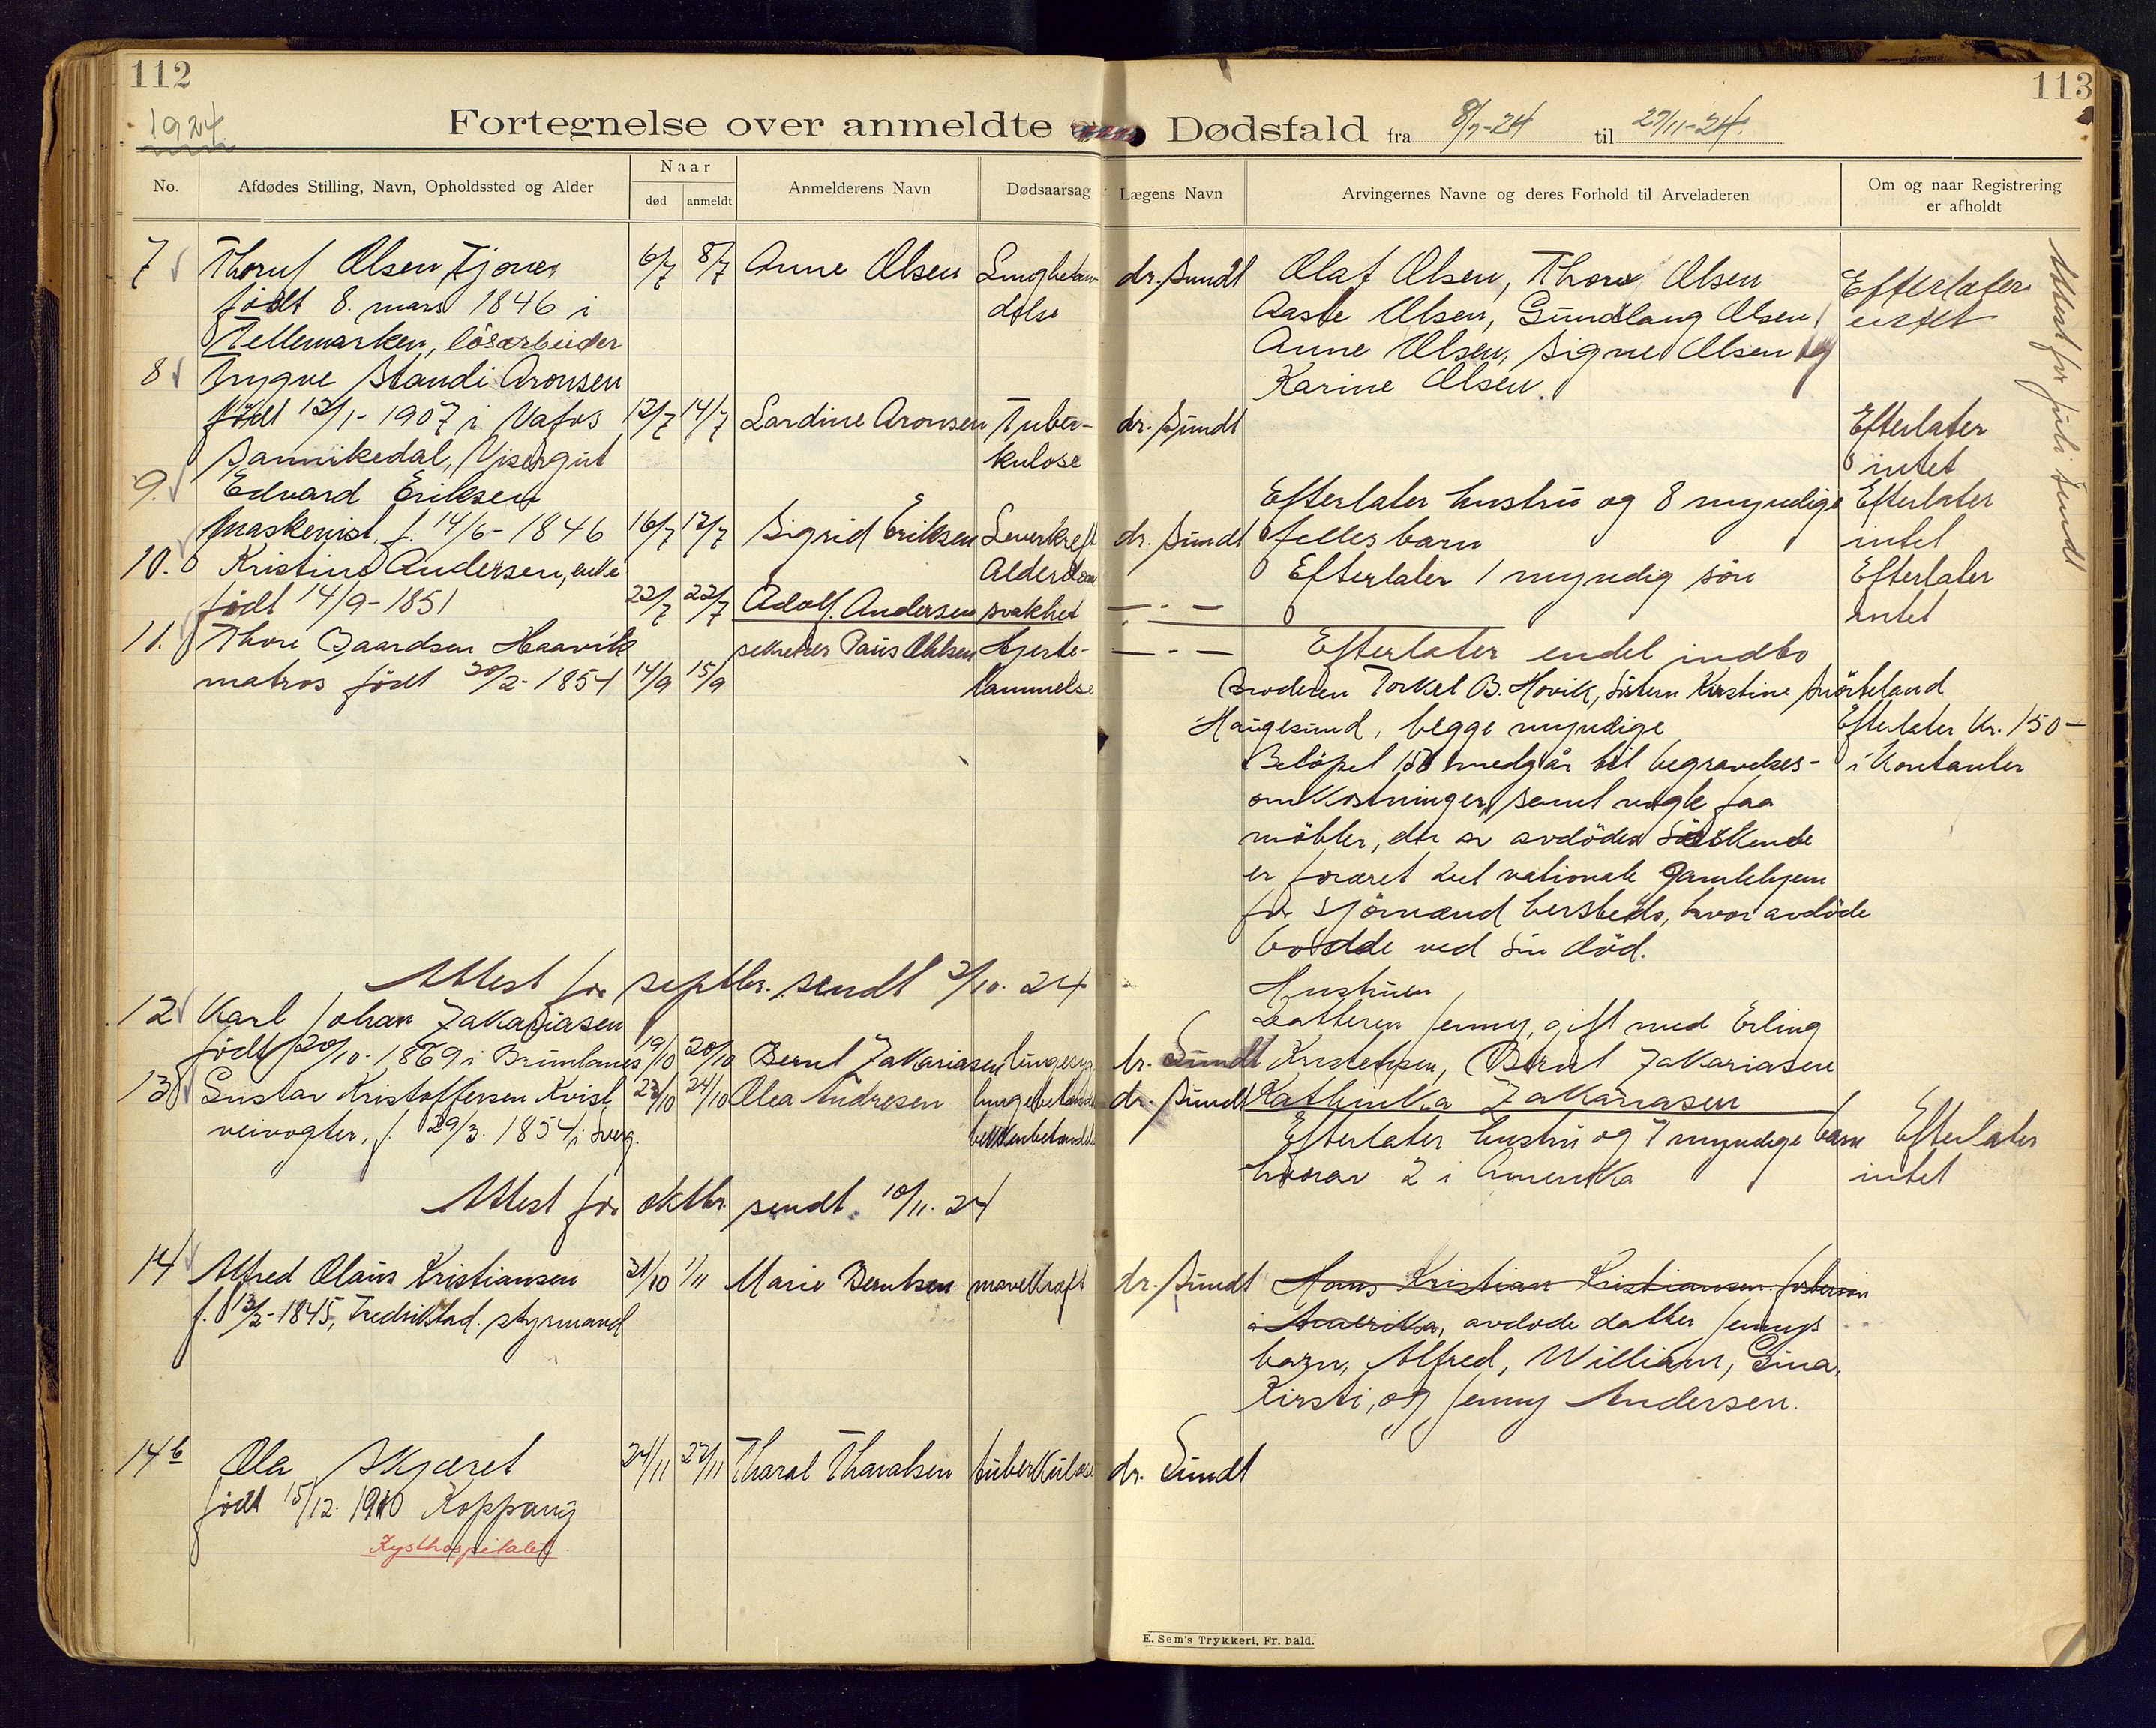 112
113
1924
Fortegnelse over anmeldte Dødsfald fra 8/7-24 til 27/11-24.
No.
Afdødes Stilling, Navn, Opholdssted og Alder
Naar
død
anmeldt
Anmelderens Navn
Dødsaarsag
Lægens Navn
Arvingernes Navne og deres Forhold til Arveladeren
Om og naar Registrering
er afholdt
Attest for juli sendt
7 Olsen 6/7 8/7 Anne Olsen dr. Sundt Olaf Olsen, Thore Olsen Efterlater
født 8. mars 1846 i Aaste Olsen, Gundlaug Olsen intet
Tellemarken, løsarbeider Anne Olsen, Signe Olsen og
8 Trygve Standi Aronsen Karine Olsen.
født 12/1-1907 i Vafos 12/7 14/7 Lardine Aronsen Tuber- dr. Sundt Efterlater
Sannikedal, Visergut kulose intet
9. Edvard Eriksen Efterlater hustru og 8 myndige Efterlater
maskenist, f. 14/6-1846 16/7 17/7 Sigrid Eriksen Leverkreft dr. Sundt felles barn intet
10. Kristine Andersen, enke Alderdom Efterlater 1 myndig søn Efterlater
født 14/9-1851 22/7 22/7 Adolf Andersen svakhet — . — intet
11. Thore Baardsen Haavik sekretær Paus Ohlsen Hjerte- — . — Efterlater endel indbo
matros født 20/2-1854 14/9 15/9 lammelse Broderen Torkel B. Hovik, Søstern Kirstine Snörteland
Haugesund, begge myndige Efterlater Kr. 150-
Beløpet 150 medgår til begravelses- i Kontanter
omkostninger, samt nogle faa
möbler, der av avdödes Söskende
er foræret det nationale Gamlehjem
for Sjömænd hersteds, hvor avdöde
bodde ved sin död.
Attest for septbr. sendt 2/10. 24
Hustruen
12 Karl Johan Zakariasen Datteren Jenny, gift med Erling
født 20/10-1869 i Brunlanes 19/10 20/10 Bernt Zakariasen dr. Sundt Kristensen, Bernt Zakariasen
13 Gustav Kristoffersen Kvist 23/10 24/10 Olea Andresen dr. Sundt Kathinka Zakariasen
veivogter, f. 29/3. 1854 i Sverg. Efterlater hustru og 7 myndige barn Efterlater
hvorav 2 i Amerika intet
Attest for oktbr. sendt 10/11. 24
14 Alfred Olaus Kristiansen 31/10 1/11 Marie Berntsen mavekræft dr. Sundt Hans Kristian Kristiansen fosterson
f. 13/2-1845, Fredrikstad. styrmand i Amerika, avdøde datter Jennys
barn, Alfred, William, Gina,
Kirsti, og Jenny Andersen.
14b Ola Skjæret 24/11 27/11 Tharal Tharalsen tuberkulose dr. Sundt
født 15/12. 1910 Koppang
Kysthospitalet
E. Sem's Trykkeri, Fr. hald.